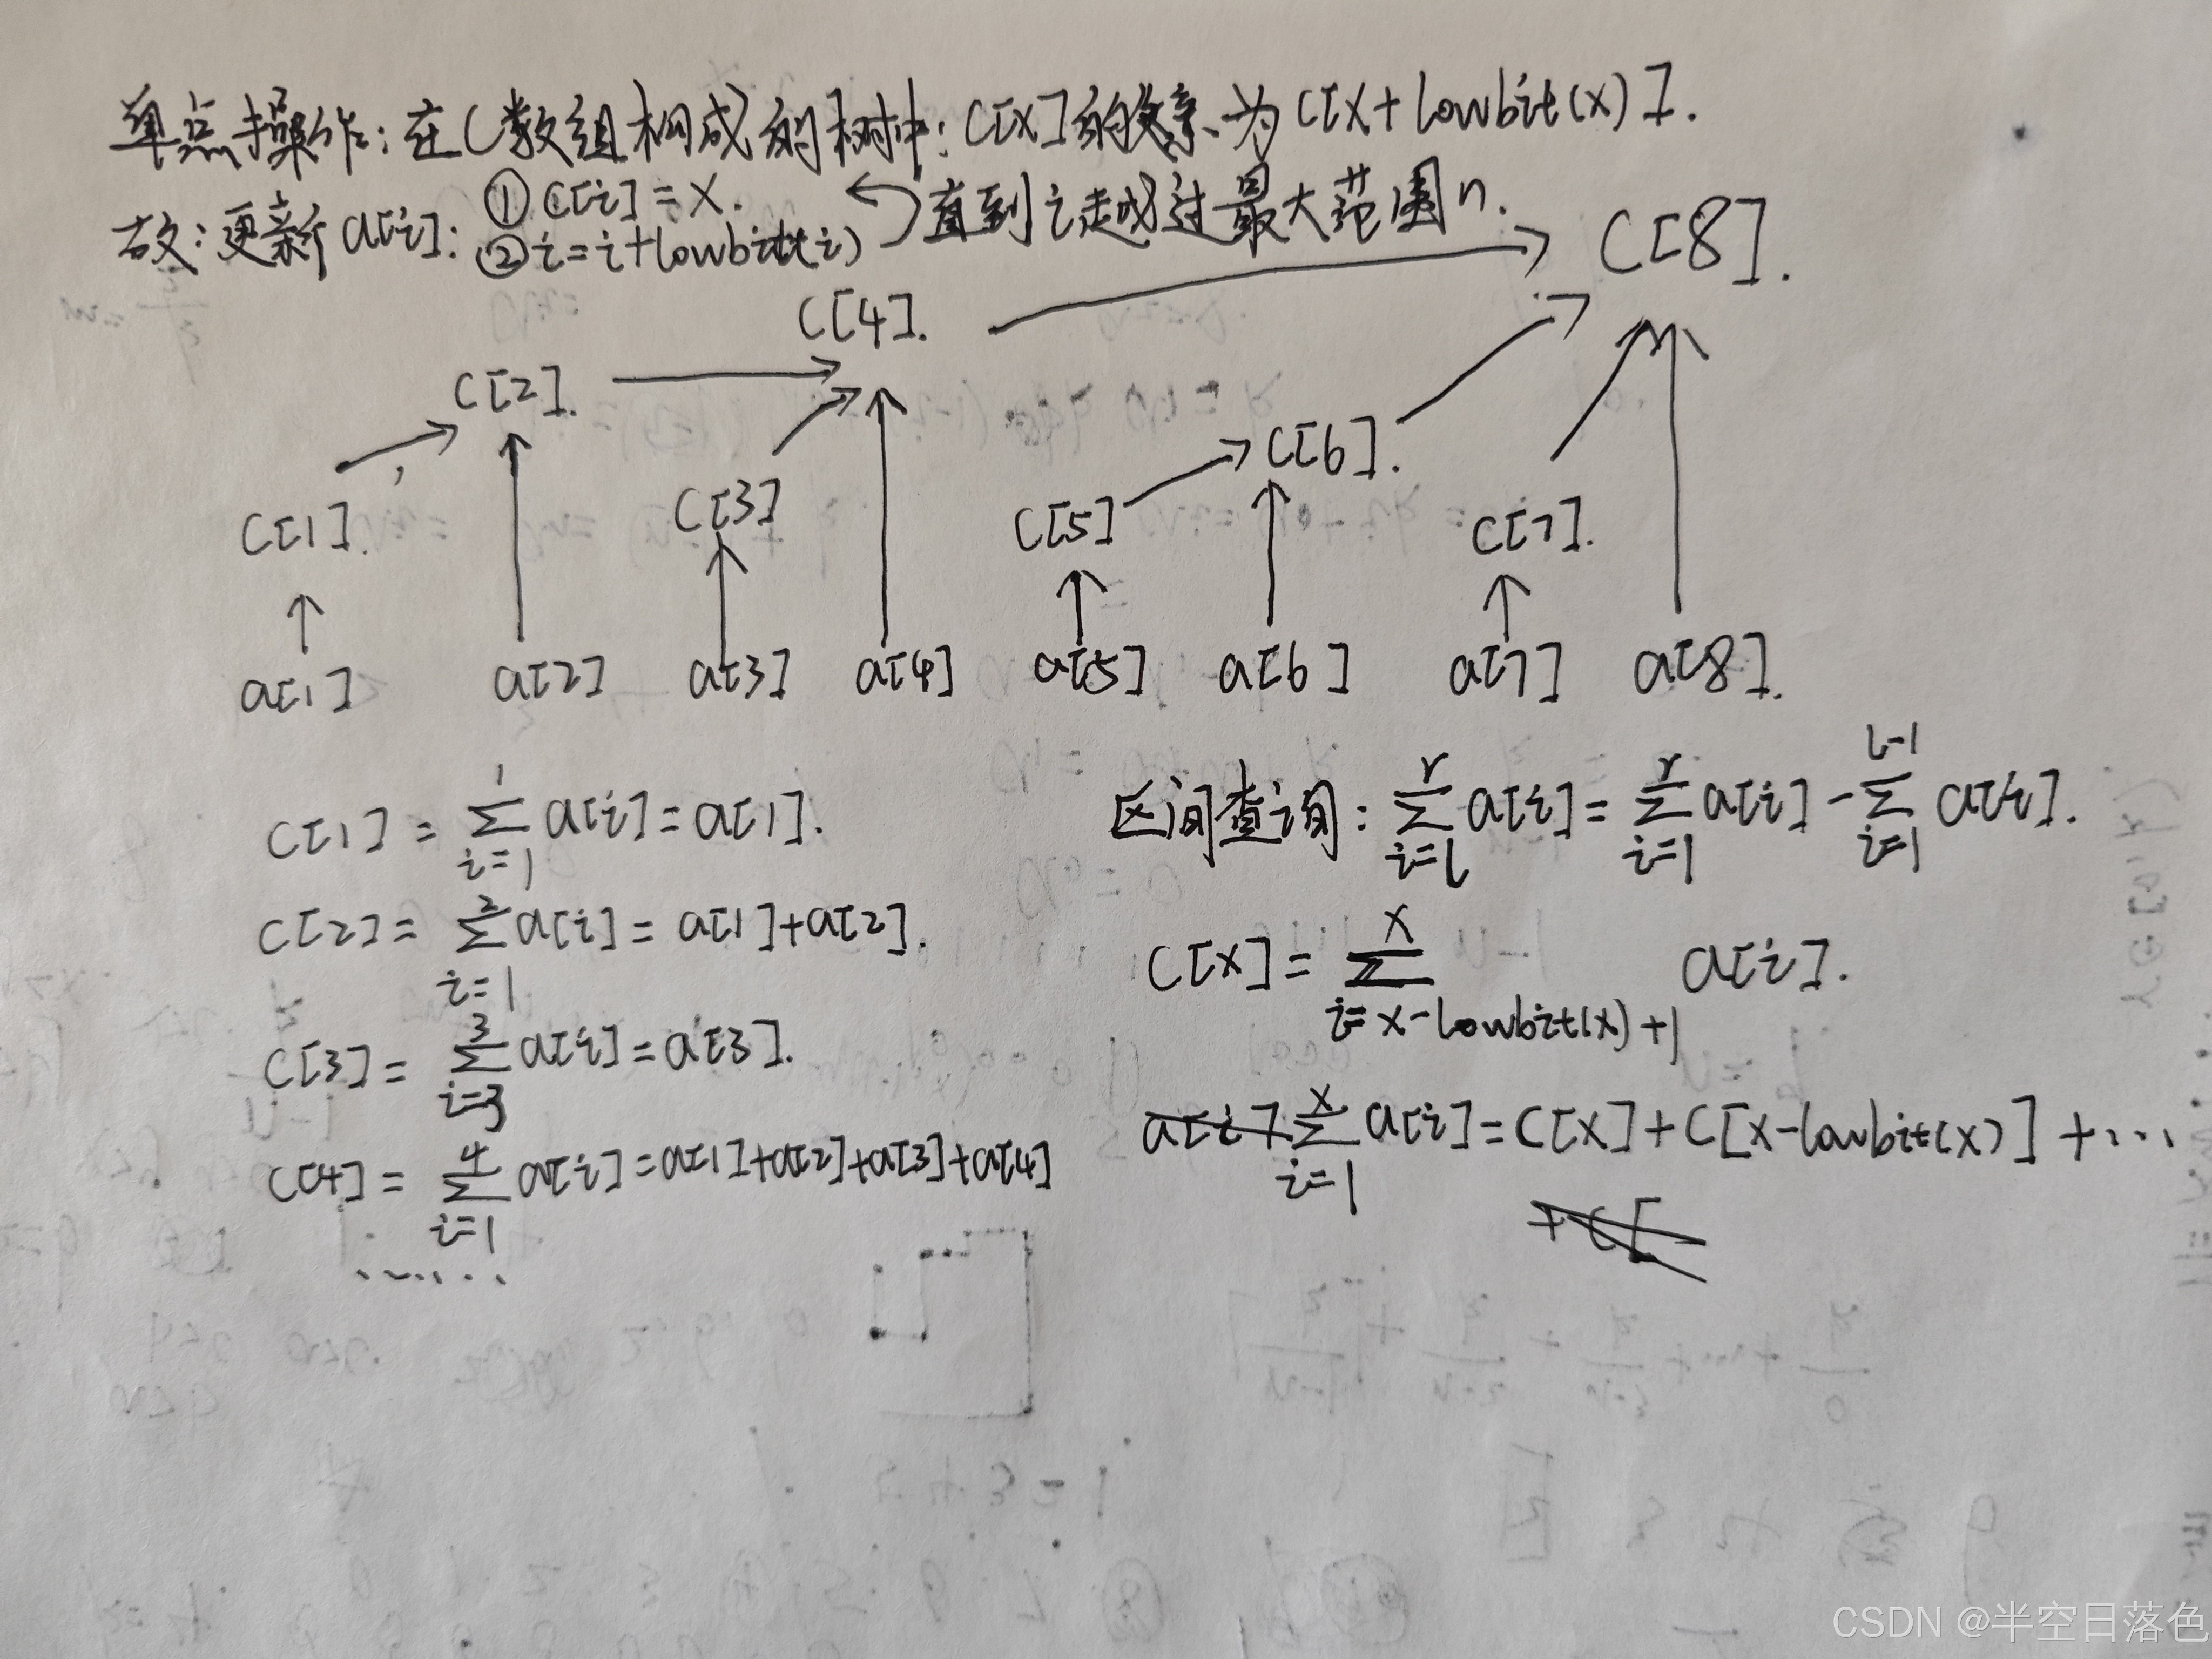 单点操作：在C数组构成的树中：C[x]的父亲为C[x+lowbit(x)].
故：更新a[i]：① C[i]=x. 直到i越过最大范围n.
② i=i+lowbit(i)
C[8].
C[4].
C[2].
C[6].
C[1]. C[3] C[5] C[7].
a[1] a[2] a[3] a[4] a[5] a[6] a[7] a[8].
C[1] = ∑_{i=1}^{1} a[i] = a[1].
C[2] = ∑_{i=1}^{2} a[i] = a[1]+a[2].
C[3] = ∑_{i=3}^{3} a[i] = a[3].
C[4] = ∑_{i=1}^{4} a[i] = a[1]+a[2]+a[3]+a[4]
......
区间查询：∑_{i=l}^{r} a[i] = ∑_{i=1}^{r} a[i] - ∑_{i=1}^{l-1} a[i].
C[x] = ∑_{i=x-lowbit(x)+1}^{x} a[i].
∑_{i=1}^{x} a[i] = C[x] + C[x-lowbit(x)] + ...
CSDN @半空日落色